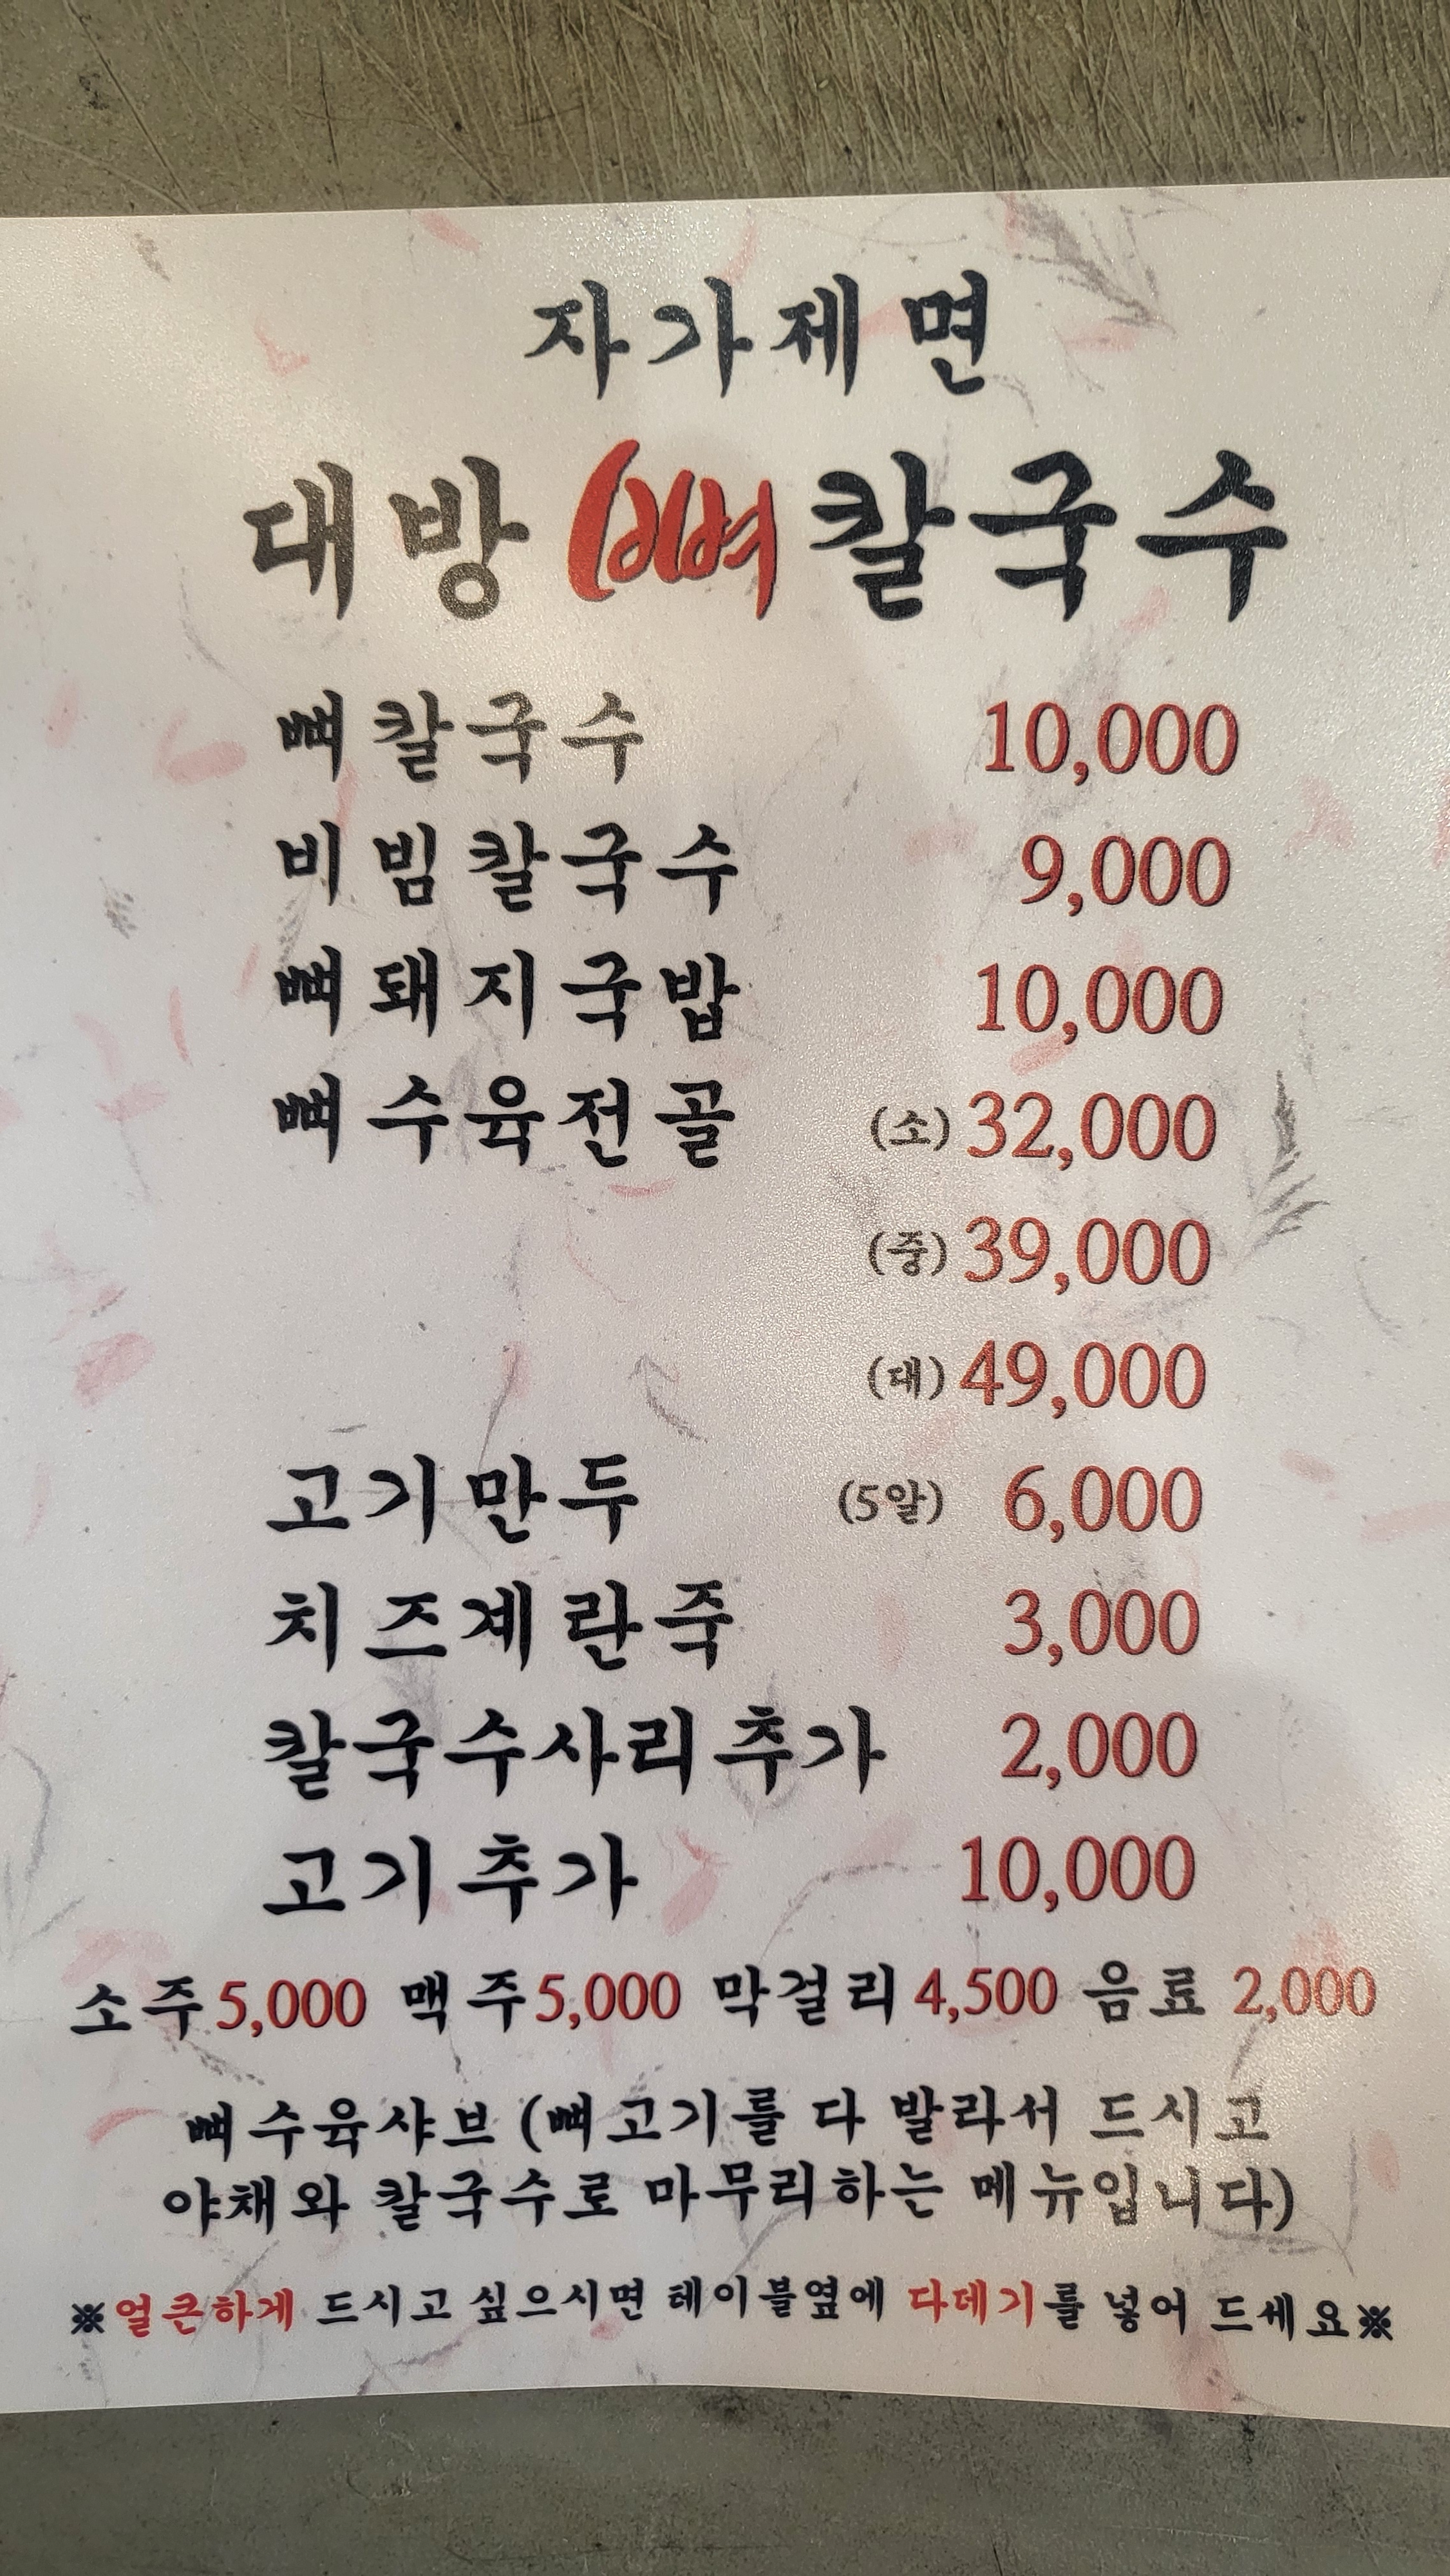 자가제면
대방 뼈 칼국수
뼈칼국수 10,000
비빔칼국수 9,000
뼈돼지국밥 10,000
뼈수육전골 (소) 32,000
(중) 39,000
(대) 49,000
고기만두 (5알) 6,000
치즈계란죽 3,000
칼국수사리추가 2,000
고기추가 10,000
소주 5,000 맥주 5,000 막걸리 4,500 음료 2,000
뼈수육샤브 (뼈고기를 다 발라서 드시고
야채와 칼국수로 마무리하는 메뉴입니다)
※얼큰하게 드시고 싶으시면 테이블옆에 다데기를 넣어 드세요※